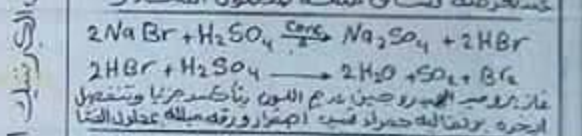 2NaBr + H₂SO₄ —conc/Δ→ Na₂SO₄ + 2HBr
2HBr + H₂SO₄ → 2H₂O + SO₂ + Br₂
غاز بروميد الهيدروجين عديم اللون يتأكسد جزئيا وتنفصل
أبخرة برتقالية حمراء تسبب اصفرار ورقة مبللة بمحلول النشا